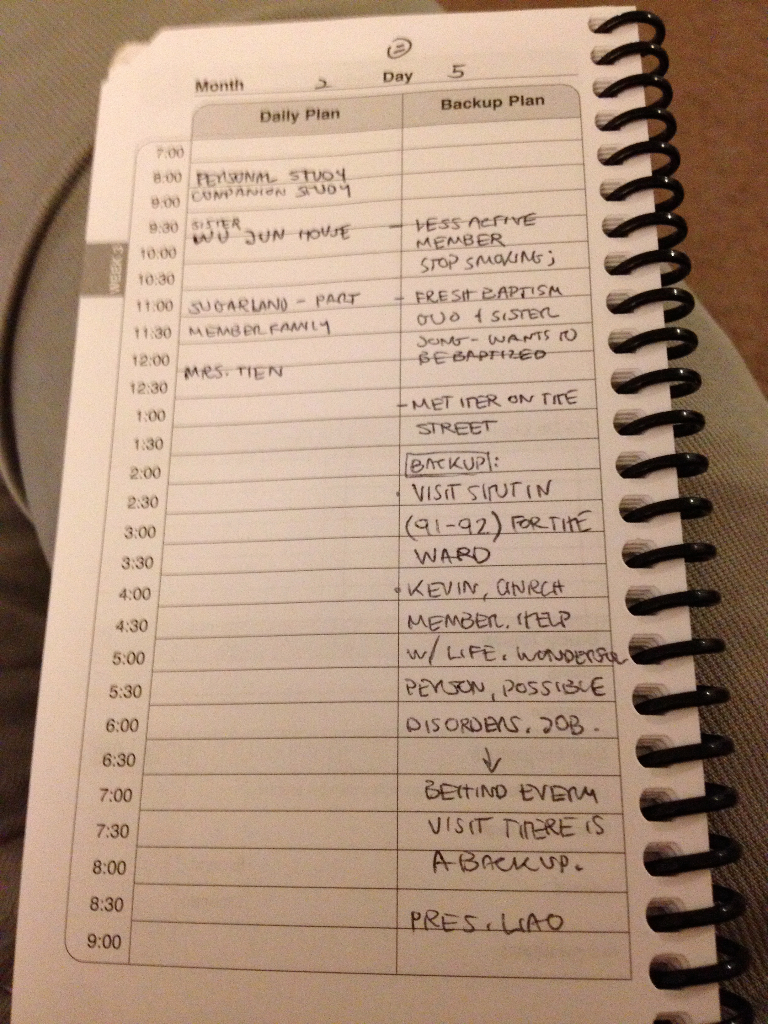 二
Month 2 Day 5
Daily Plan Backup Plan
7:00
8:00 PERSONAL STUDY
COMPANION STUDY
9:00
9:30 SISTER
WU JUN HOUSE - LESS ACTIVE
10:00 MEMBER
STOP SMOKING;
10:30
11:00 SUGARLAND - PART - FRESH BAPTISM
11:30 MEMBER FAMILY GUO & SISTER
JONG - WANTS TO
12:00 BE BAPTIZED
MRS. TIEN
12:30
1:00 - MET HER ON THE
STREET
1:30
2:00 BACKUP:
2:30 • VISIT SHUTIN
3:00 (91-92) FOR THE
3:30 WARD
4:00 • KEVIN, CHURCH
4:30 MEMBER. HELP
5:00 W/ LIFE. WONDERFUL
5:30 PERSON, POSSIBLE
6:00 DISORDERS. JOB.
6:30 ↓
7:00 BEHIND EVERY
7:30 VISIT THERE IS
8:00 A BACKUP.
8:30
9:00 PRES. LIAO
WEEK 3